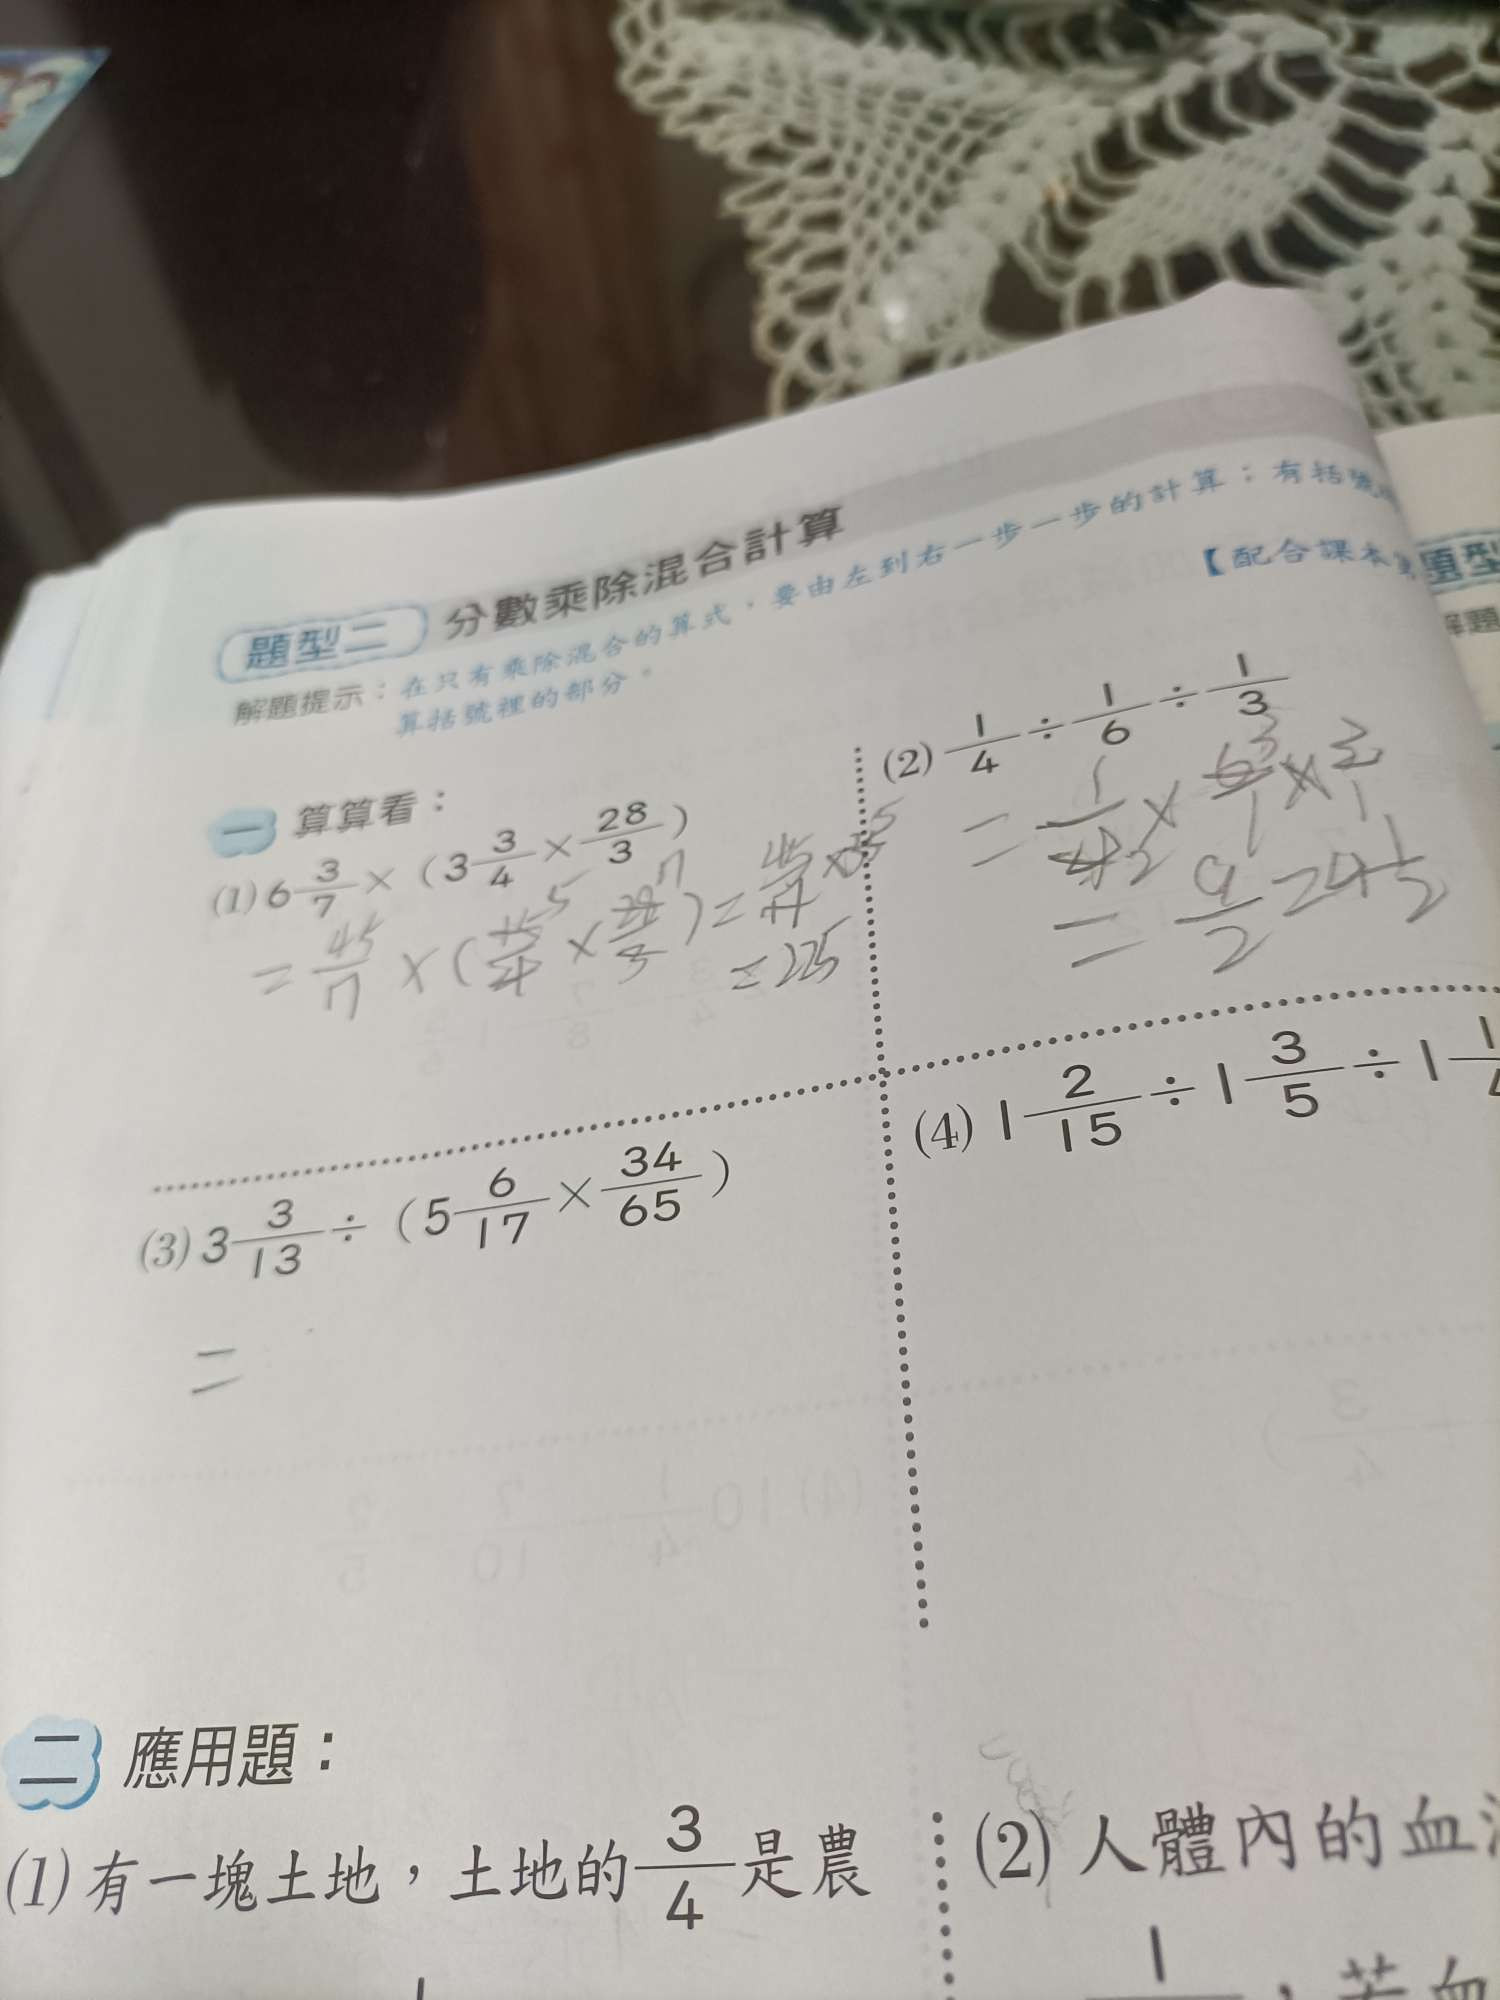 題型二 分數乘除混合計算
解題提示：在只有乘除混合的算式，要由左到右一步一步的計算；有括號
算括號裡的部分。
【配合課本
題型
解題
一 算算看：
(1) 6 3/7 × (3 3/4 × 28/3)
= 45/7 × (
= 225
(2) 1/4 ÷ 1/6 ÷ 1/3
= 9/2 = 4 1/2
(3) 3 3/13 ÷ (5 6/17 × 34/65)
=
(4) 1 2/15 ÷ 1 3/5 ÷ 1
二 應用題：
(1) 有一塊土地，土地的 3/4 是農
(2) 人體內的血